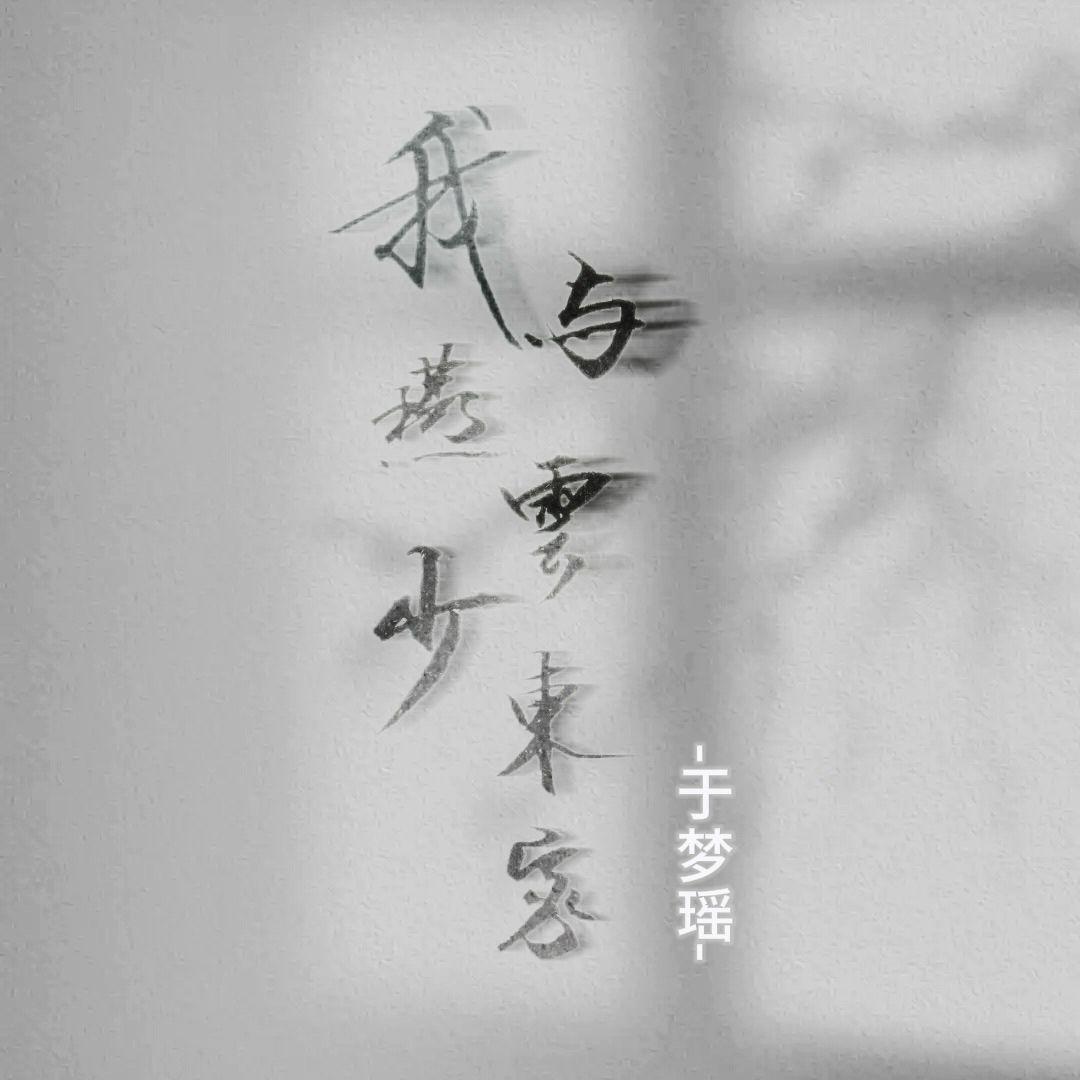 我与燕雲少東家
-于梦瑶-